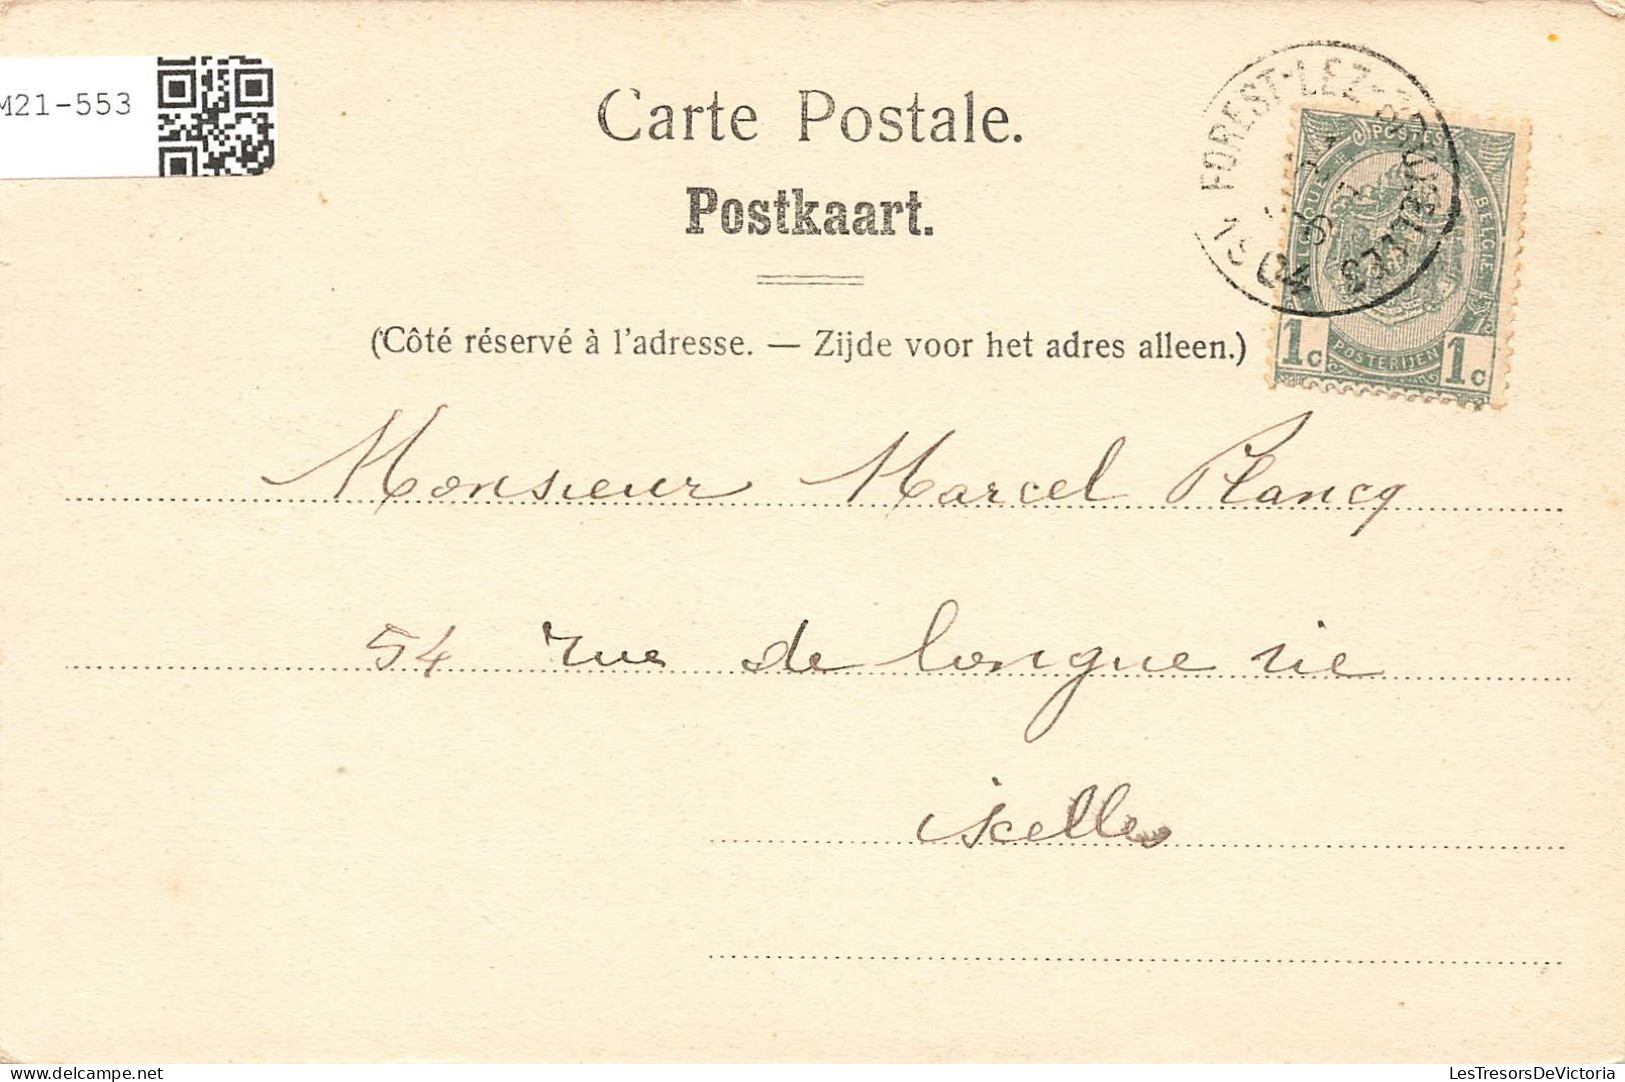 M21-553
Carte Postale.
Postkaart.
FOREST-LEZ-BRUXELLES
1904
POSTES
BELGIQUE
BELGIE
POSTERIJEN
1c 1c
(Côté réservé à l'adresse. — Zijde voor het adres alleen.)
Monsieur Marcel Plancq
54 rue de longue vie
ixelles
LesTresorsDeVictoria